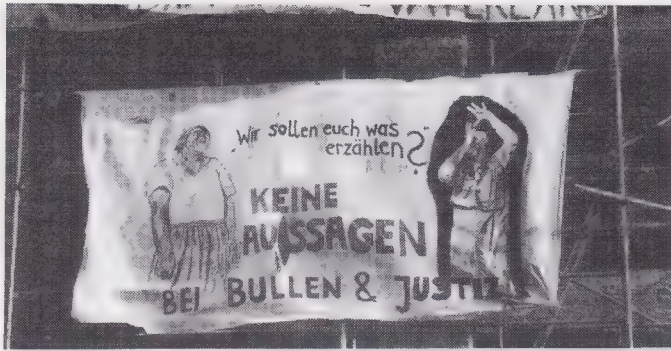 VATERLAND
Wir sollen euch was
erzählen?
KEINE
AUSSAGEN
BEI BULLEN & JUSTIZ